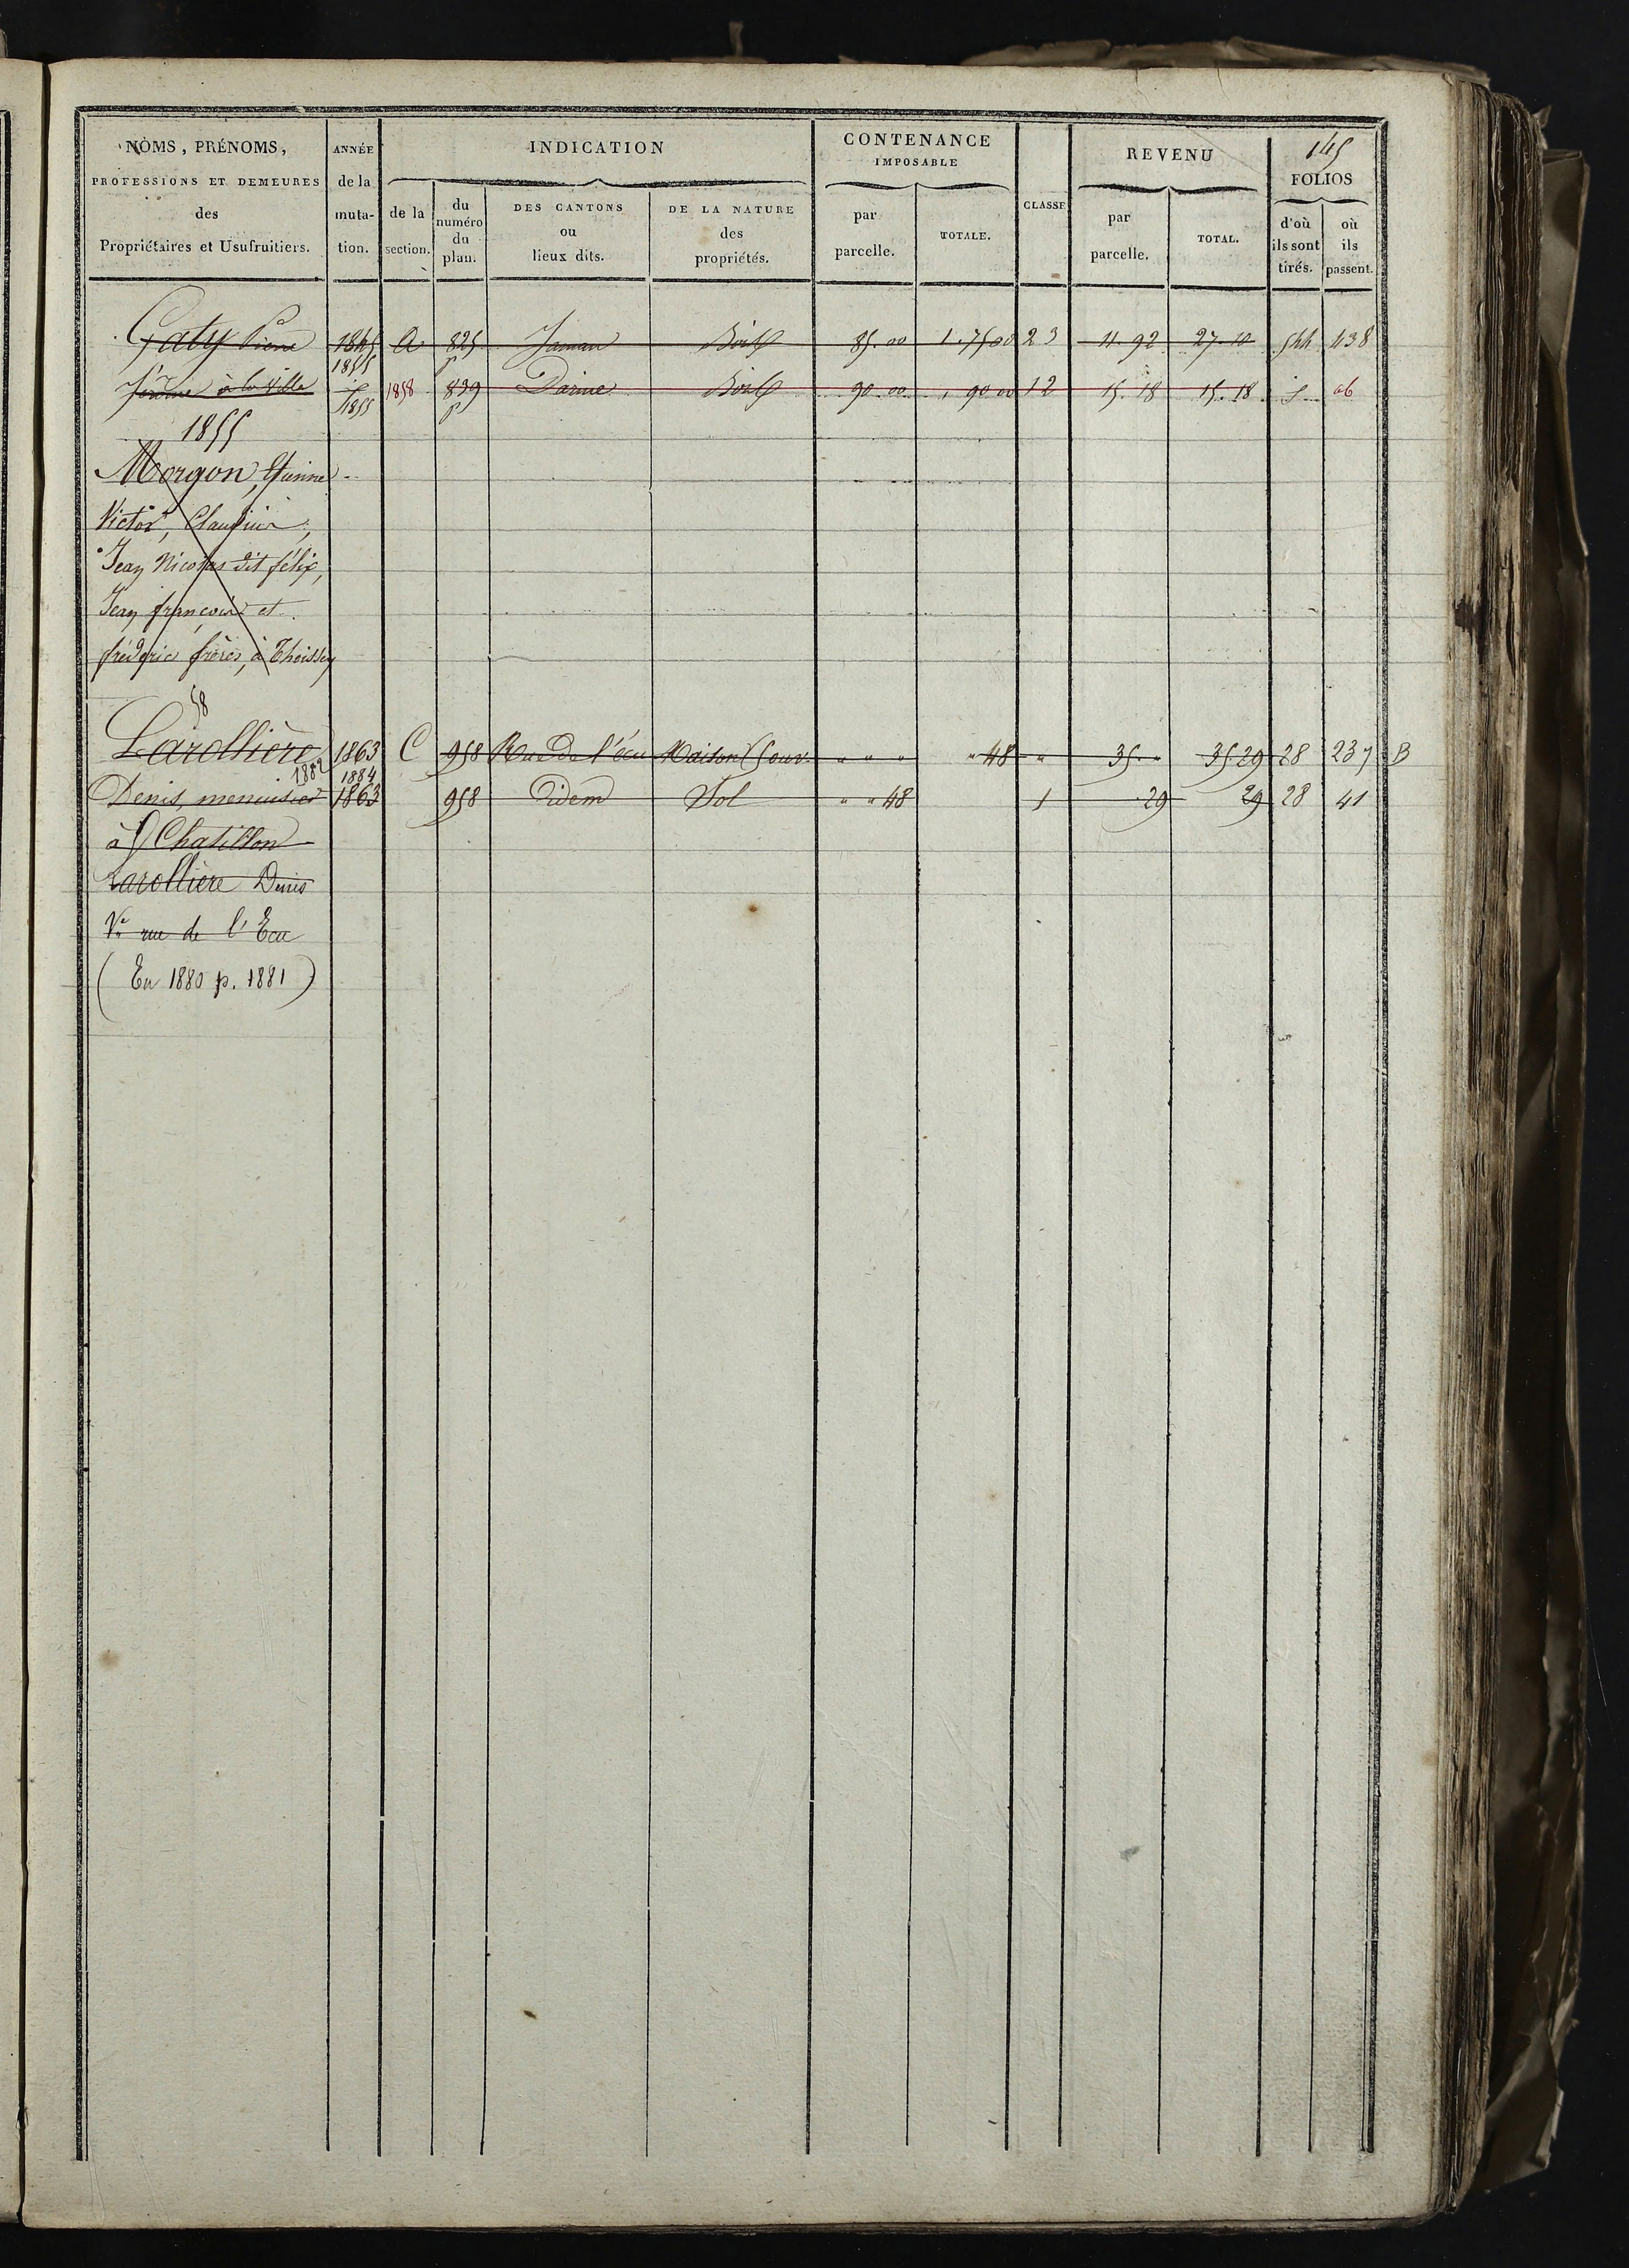 145
NOMS, PRÉNOMS,
PROFESSIONS ET DEMEURES
des
Propriétaires et Usufruitiers.
ANNÉE
de la
muta-
tion.
INDICATION
de la
section.
du
numéro
du
plan.
DES CANTONS
ou
lieux dits.
DE LA NATURE
des
propriétés.
CONTENANCE
IMPOSABLE
par
parcelle.
TOTALE.
CLASSE
REVENU
par
parcelle.
TOTAL.
FOLIOS
d'où
ils sont
tirés.
où
ils
passent.
Gaty Pierre 1845 A 825 Jaman Bois 85.00 1.75 00 23 11.92 27.10 544 438
1855 p
Jérôme à la Ville 1858 839 Bois 90.00 90 00 12 15.18 15.18
1855 p
1855
Morgon, Etienne
Victor, Claudius,
Jean Nicolas dit félix,
Jean françois et
fréderic frères, à Thoissey
58
Larollière 1863 C 958 Rue de l'écu Maison 5 ouv. " " " " 48 " 35 " 35 29 28 237 B
1882 1884
Denis, menuisier 1863 958 Idem Sol " " 48 1 29 29 28 41
à Chatillon
Larollière Denis
Ve rue de l'Ecu
(En 1880 p. 1881)